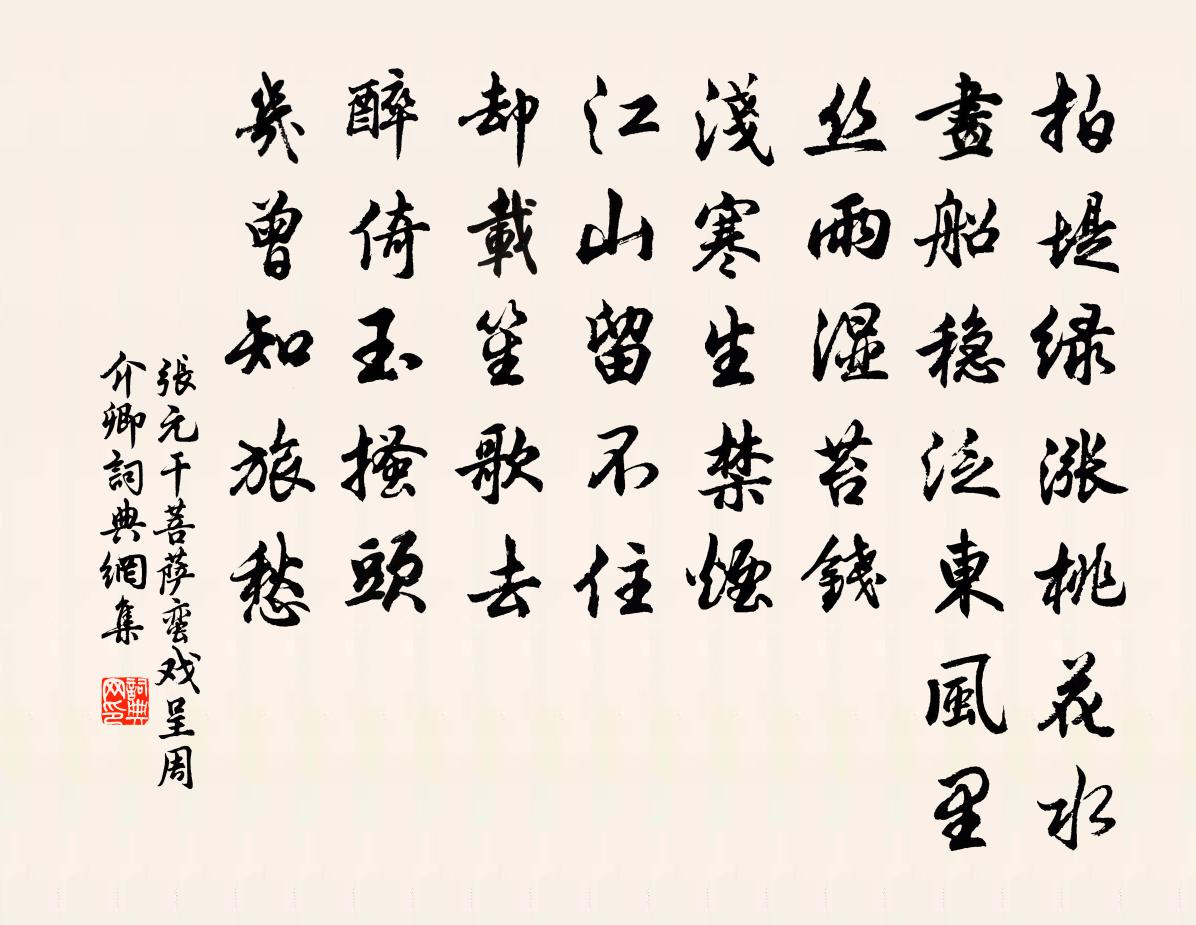 拍堤绿漲桃花水
畫船穏泛東風里
丝雨濕苔錢
淺寒生禁煙
江山留不住
却載笙歌去
醉倚玉搔頭
幾曾知旅愁
張元干菩萨蛮戏呈周
介卿詞典網集
詞典
网印